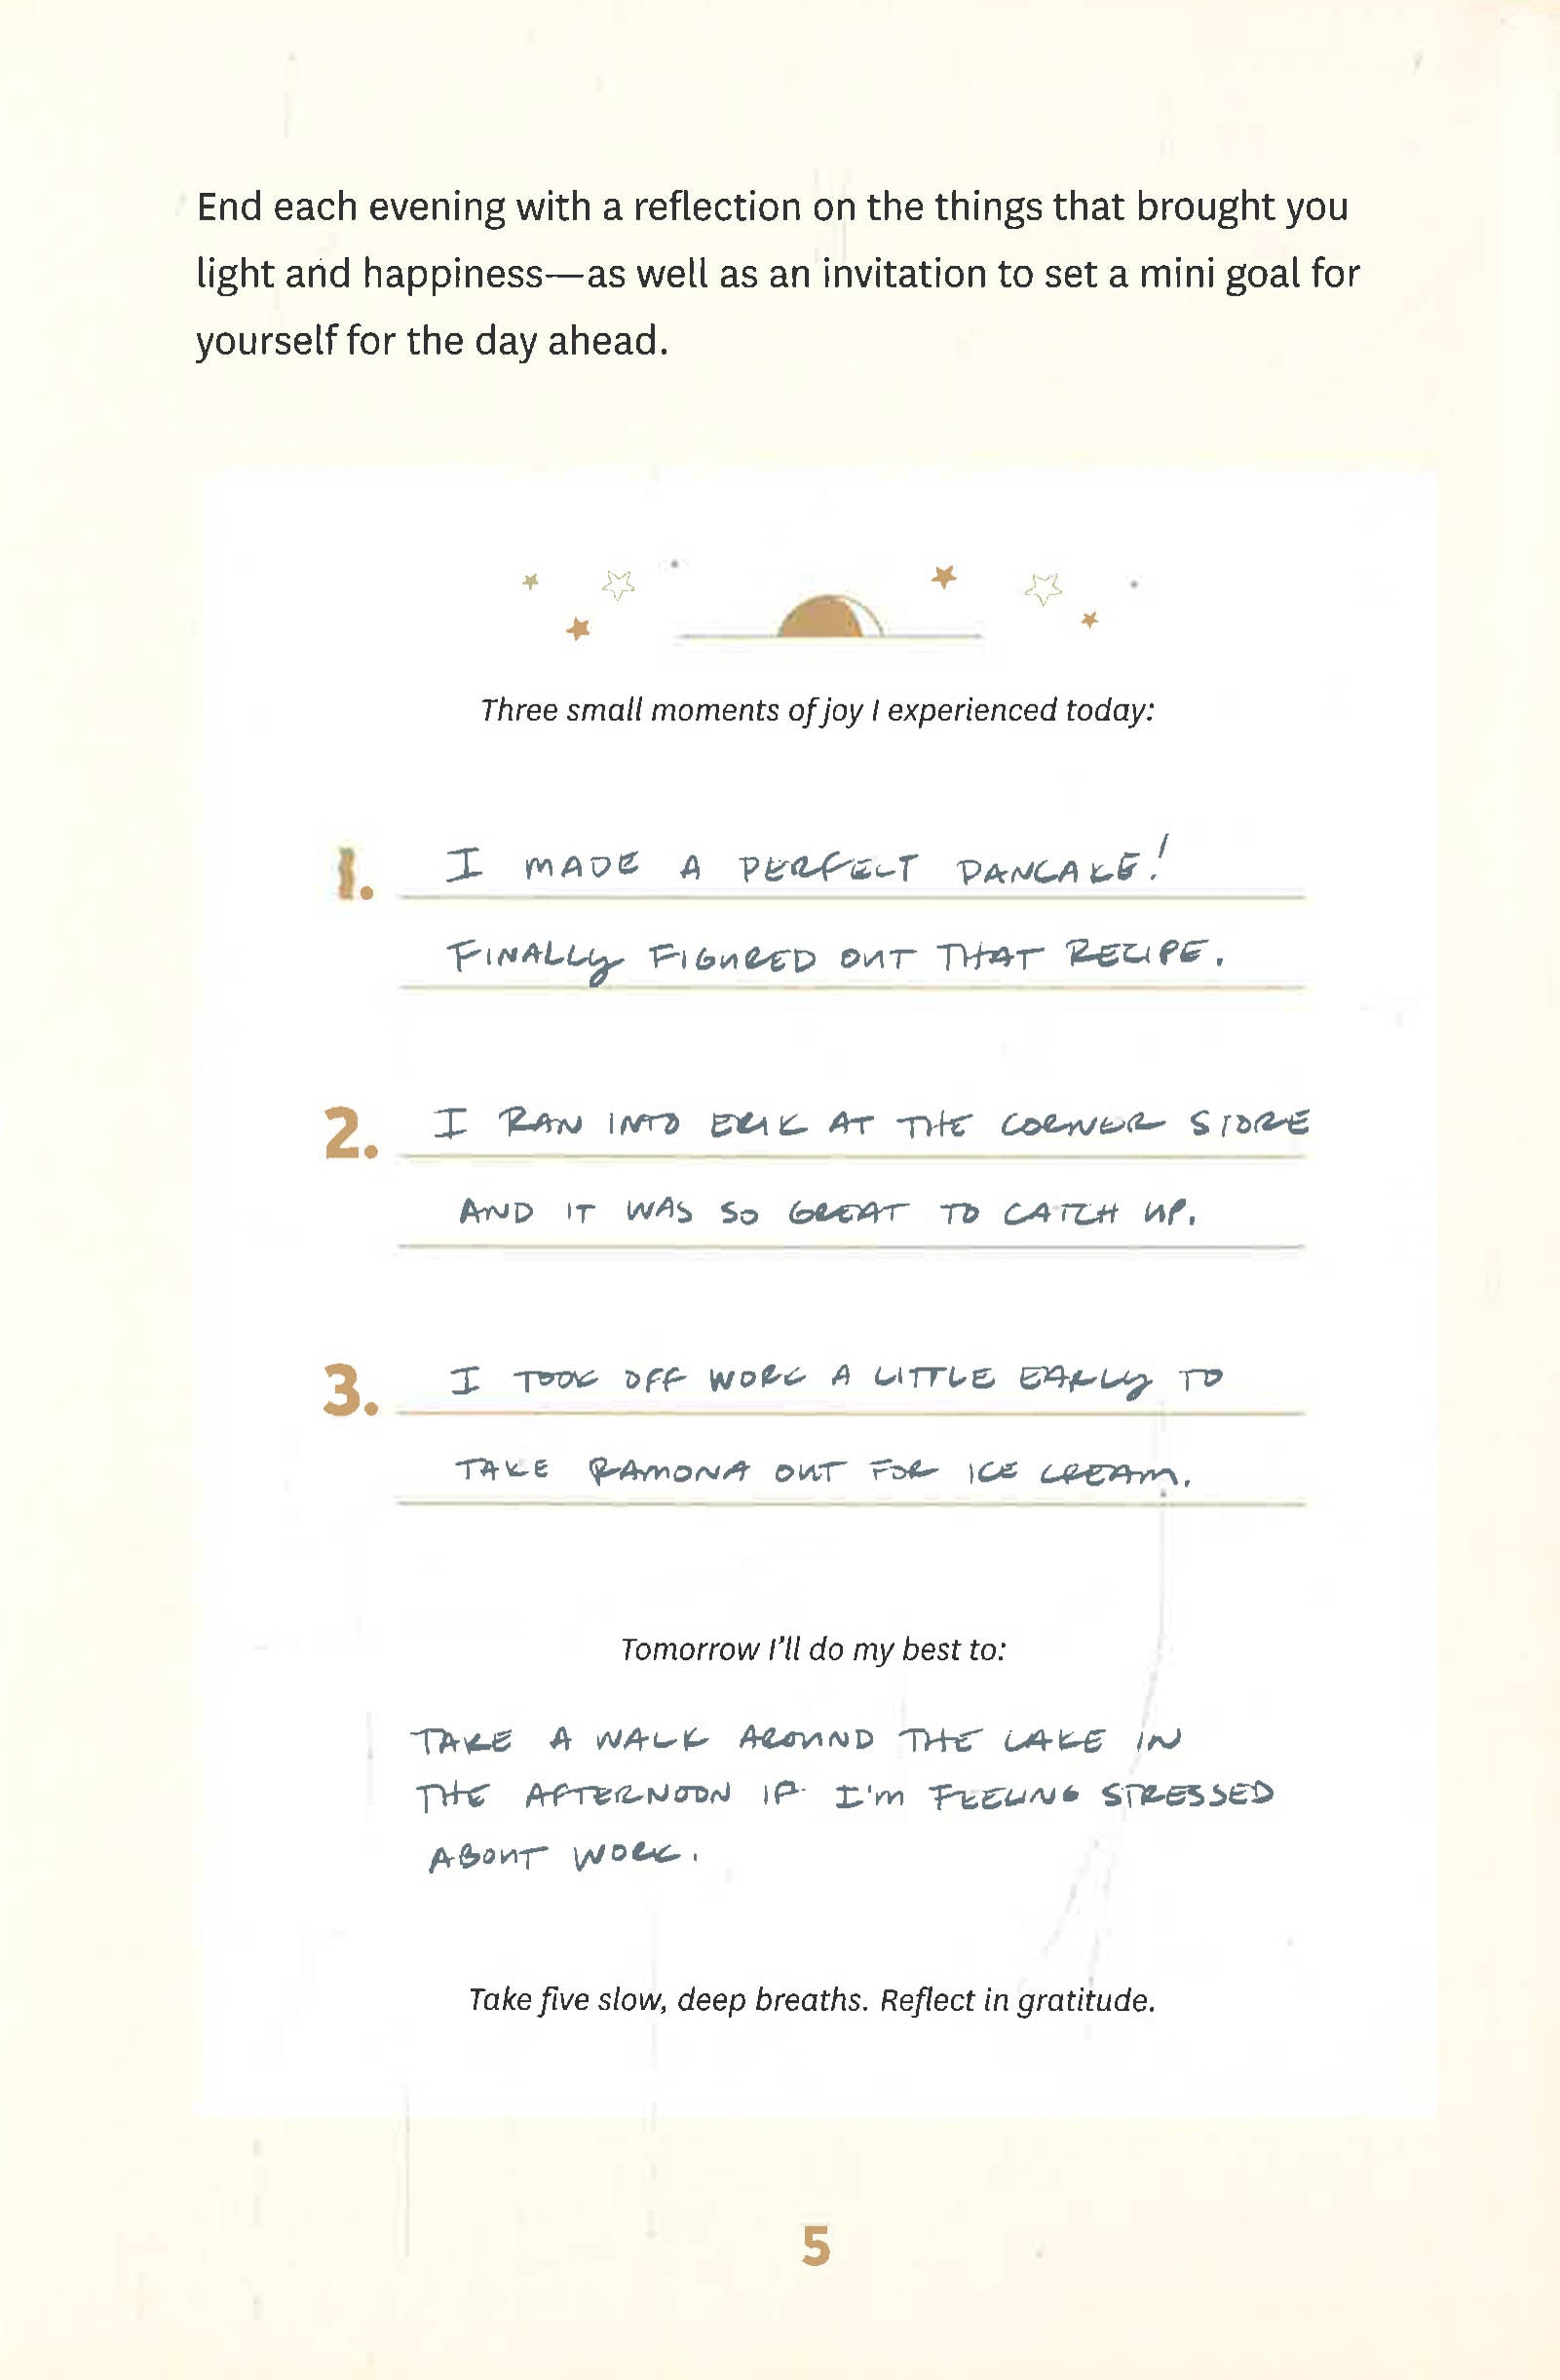 End each evening with a reflection on the things that brought you
light and happiness—as well as an invitation to set a mini goal for
yourself for the day ahead.
Three small moments of joy I experienced today:
1. I MADE A PERFECT PANCAKE!
FINALLY FIGURED OUT THAT RECIPE.
2. I RAN INTO ERIK AT THE CORNER STORE
AND IT WAS SO GREAT TO CATCH UP.
3. I TOOK OFF WORK A LITTLE EARLY TO
TAKE RAMONA OUT FOR ICE CREAM.
Tomorrow I'll do my best to:
TAKE A WALK AROUND THE LAKE IN
THE AFTERNOON IF I'M FEELING STRESSED
ABOUT WORK.
Take five slow, deep breaths. Reflect in gratitude.
5